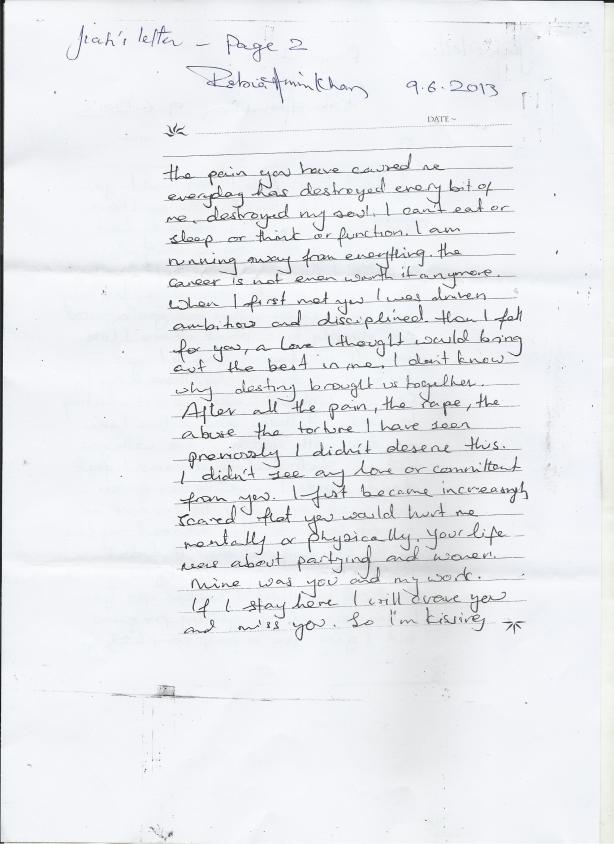 Jiah's letter – Page 2
Rabia Amin Khan 9.6.2013
DATE ~
the pain you have caused me
everyday has destroyed every bit of
me, destroyed my soul. I can't eat or
sleep or think or function. I am
running away from everything. the
career is not even worth it anymore.
when I first met you I was driven
ambitious and disciplined. then I fell
for you, a love I thought would bring
out the best in me. I don't know
why destiny brought us together.
After all the pain, the rape, the
abuse the torture I have seen
previously I didn't deserve this.
I didn't see any love or committent
from you. I just became increasingly
scared that you would hurt me
mentally or physically. Your life
was about partying and women.
Mine was you and my work.
If I stay here I will crave you
and miss you. So I'm kissing